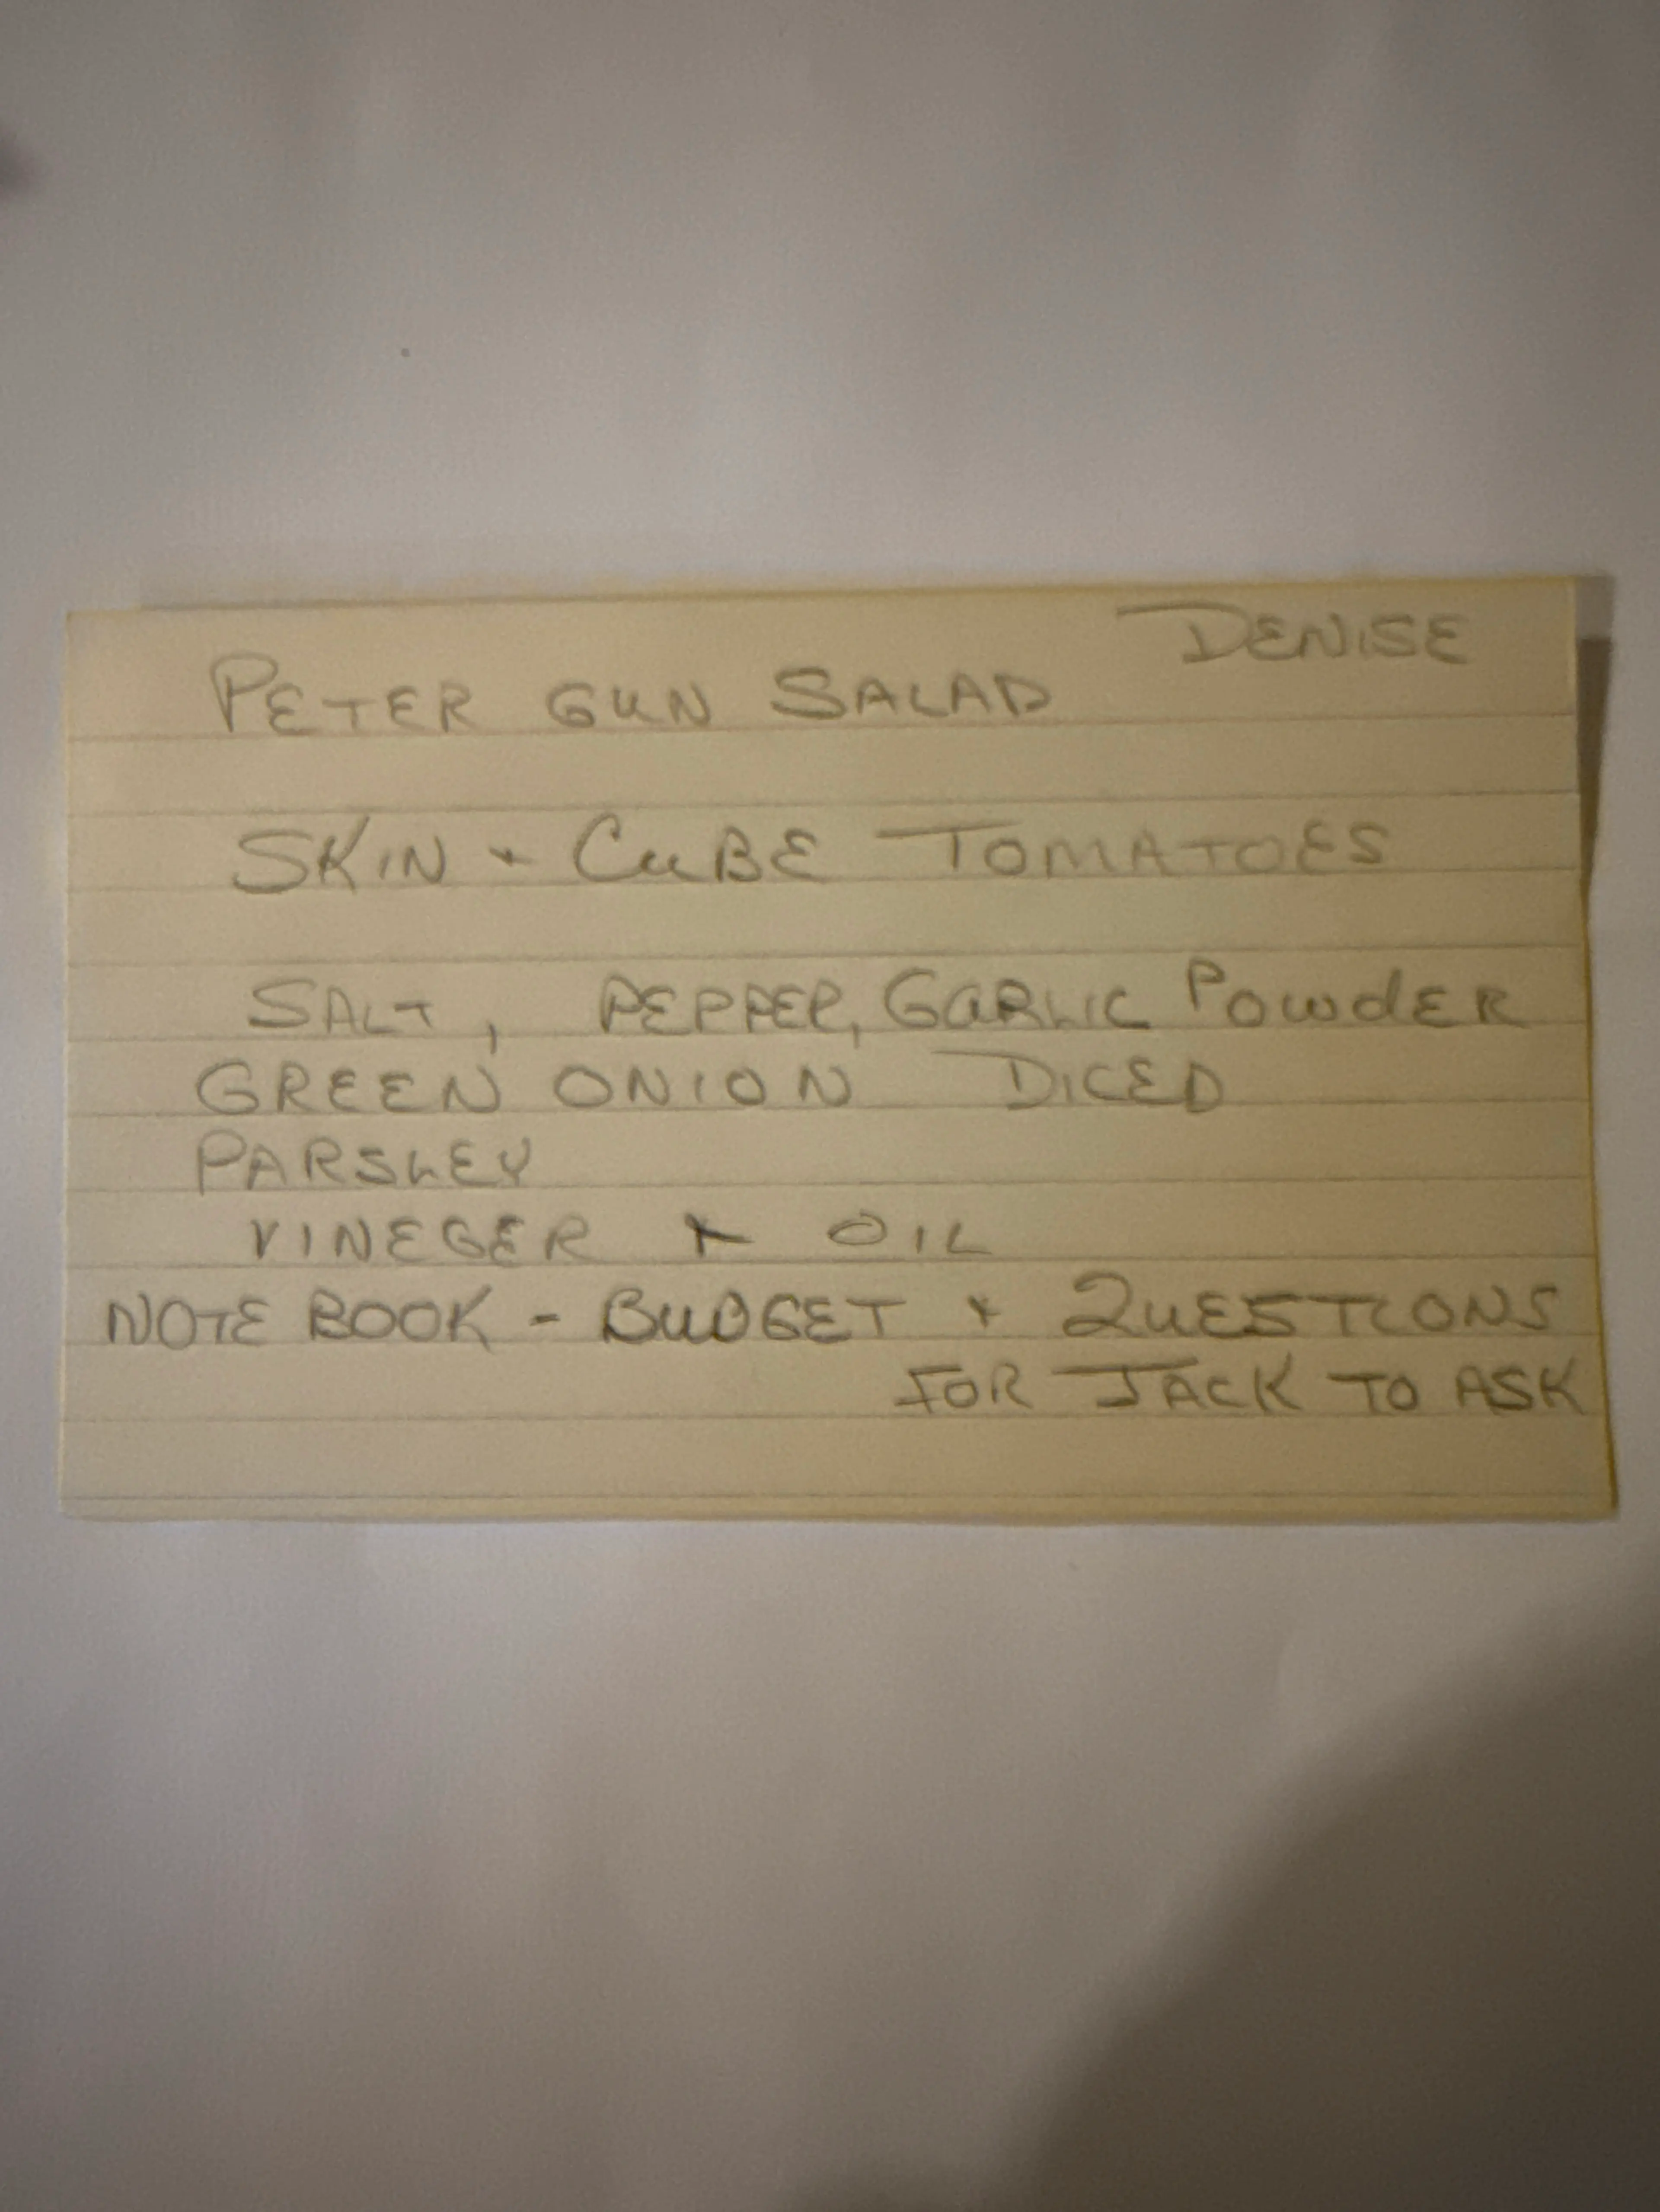 DENISE
PETER GUN SALAD
SKIN + CUBE TOMATOES
SALT, PEPPER, GARLIC POWDER
GREEN ONION DICED
PARSLEY
VINEGER + OIL
NOTE BOOK - BUDGET + QUESTIONS
FOR JACK TO ASK